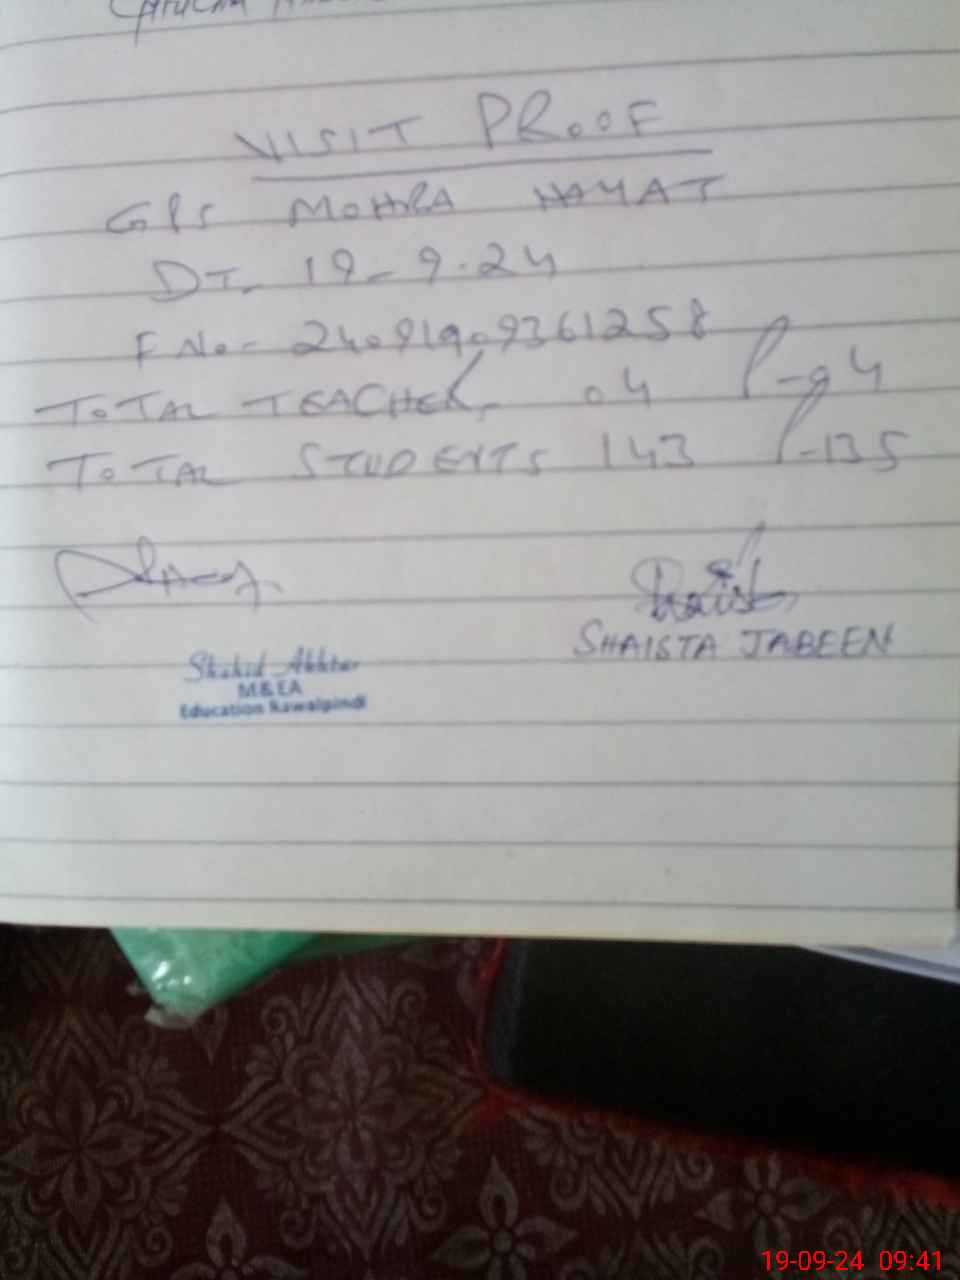 VISIT PROOF
GPS MOHRA HAYAT
DT. 19-9.24
F No:- 24091909361258
TOTAL TEACHER. 04 P-04
TOTAL STUDENTS 143 P-135
SHAISTA JABEEN
Shahid Akhtar
M&EA
Education Rawalpindi
19-09-24 09:41